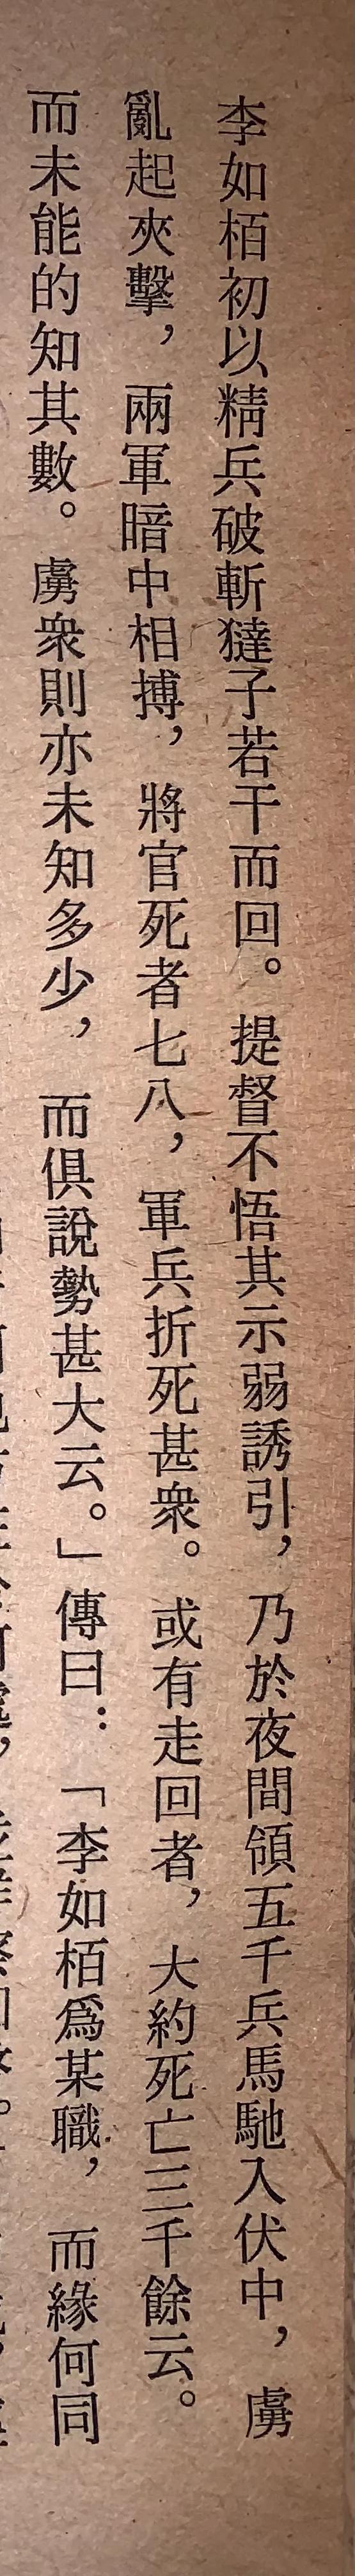 李如栢初以精兵破斬㺚子若干而回。提督不悟其示弱誘引，乃於夜間領五千兵馬馳入伏中，虜
亂起夾擊，兩軍暗中相搏，將官死者七八，軍兵折死甚衆。或有走回者，大約死亡三千餘云。
而未能的知其數。虜衆則亦未知多少，而俱說勢甚大云。」傳曰：「李如栢爲某職，而緣何同